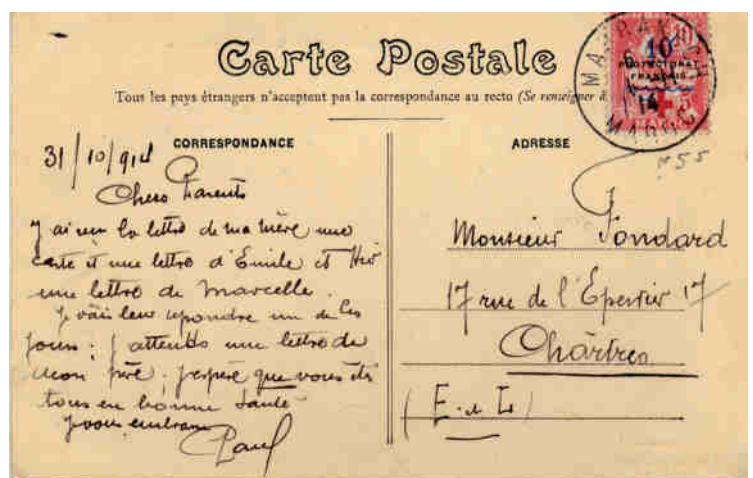 Carte Postale
Tous les pays étrangers n'acceptent pas la correspondance au recto (Se renseigner à
CORRESPONDANCE
31/10/914
Chers Parents
J'ai reçu la lettre de ma mère une
carte et une lettre d'Emile et Hier
une lettre de Marcelle.
Je vais leur repondre un de ces
jours; j'attends une lettre de
mon père; j'espère que vous êtes
tous en bonne santé
Je vous embrasse
Paul
ADRESSE
10
PROTECTORAT
FRANÇAIS
MAROC
14
Monsieur Fondard
17 rue de l'Epervier 17
Chârtres
(E. et L)